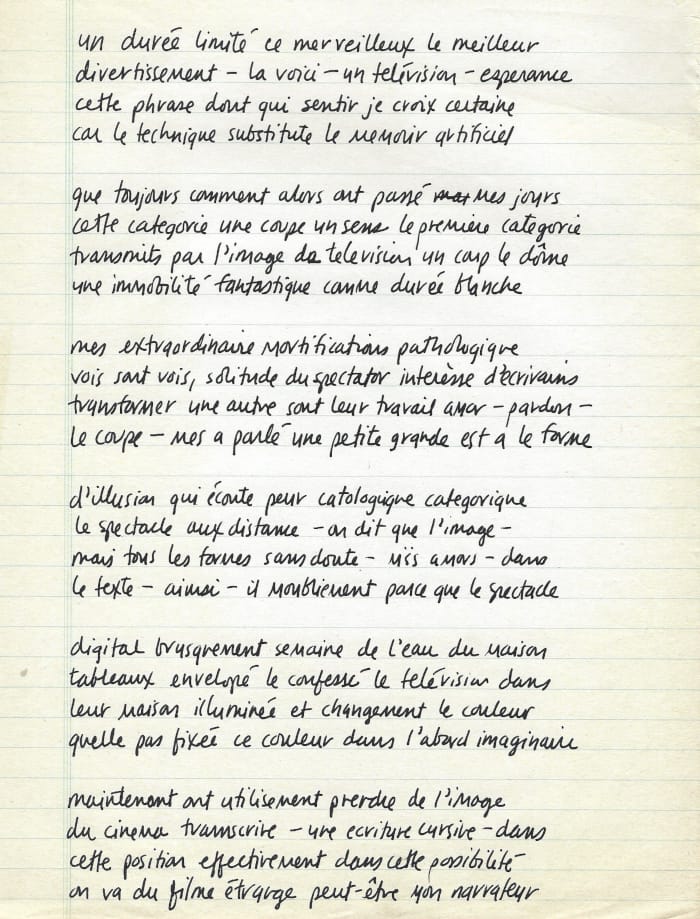 un durée limité ce merveilleux le meilleur
divertissement – la voici – un telévision – esperance
cette phrase dont qui sentir je croix certaine
car le technique substitute le memoir artificiel
que toujours comment alors ont passé mes jours
cette categorie une coupe un sens le première categorie
transmits par l'image de television un coup le dôme
une immobilité fantastique comme durée blanche
mes extraordinaire mortifications pathologique
vois sont vois, solitude du spectator interèsse d'écrivains
transformer une autre sont leur travail amor – pardon –
le coupe – mes a parlé une petite grande est a le forme
d'illusion qui écoute peur catologuque categorique
le spectacle aux distance – on dit que l'image –
mais tous les formes sans doute – amors – dans
le texte – ainsi – il moubliement parce que le spectacle
digital brusquement semaine de l'eau du maison
tableaux envelopé le confessé le telévision dans
leur maison illuminée et changement le couleur
quelle pas fixée ce couleur dans l'abord imaginaire
maintenant ont utilisement prerdre de l'image
du cinema transcrire – une ecriture cursive – dans
cette position effectivement dans cette possibilité
on va du filme étrange peut-être mon narrateur